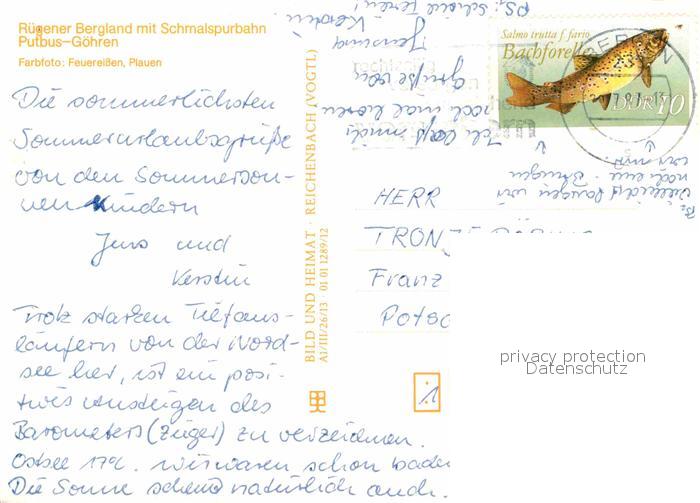 Rügener Bergland mit Schmalspurbahn
Putbus–Göhren
Farbfoto: Feuereißen, Plauen
Die sommerlichsten
Sommerurlaubsgrüße
von den Sommerson-
nenkindern
Jens und
Kerstin
Trotz starken Tiefaus-
läufern von der Nord-
see her, ist ein posi-
tives Ansteigen des
Barometers (Zeiger) zu verzeichnen.
Ostsee 17°C. wir waren schon bade
Die Sonne scheint natürlich auch.
BILD UND HEIMAT · REICHENBACH (VOGTL)
A1/III/26/13 · 01 01 1289/12
Salmo trutta f. fario
Bachforelle
DDR 10
PS: schöne Ferien!
Kerstin
Grüße von
noch mal hören
Ich laß mich
PS:
vielleicht fangen wir
noch eine
HERR
TRON
Franz
Pots
1
privacy protection
Datenschutz